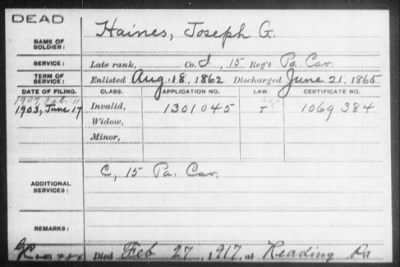 DEAD
NAME OF SOLDIER: Haines, Joseph G.
SERVICE: Late rank, Co. I, 15 Reg't Pa Cav.
TERM OF SERVICE: Enlisted Aug. 18, 1862 Discharged June 21, 1865
DATE OF FILING. CLASS. APPLICATION NO. LAW CERTIFICATE NO.
1903, June 17 Invalid, 1301045 1069384
Widow,
Minor,
ADDITIONAL SERVICES: C, 15 Pa. Cav.
REMARKS:
Died Feb 27, 1917, at Reading Pa